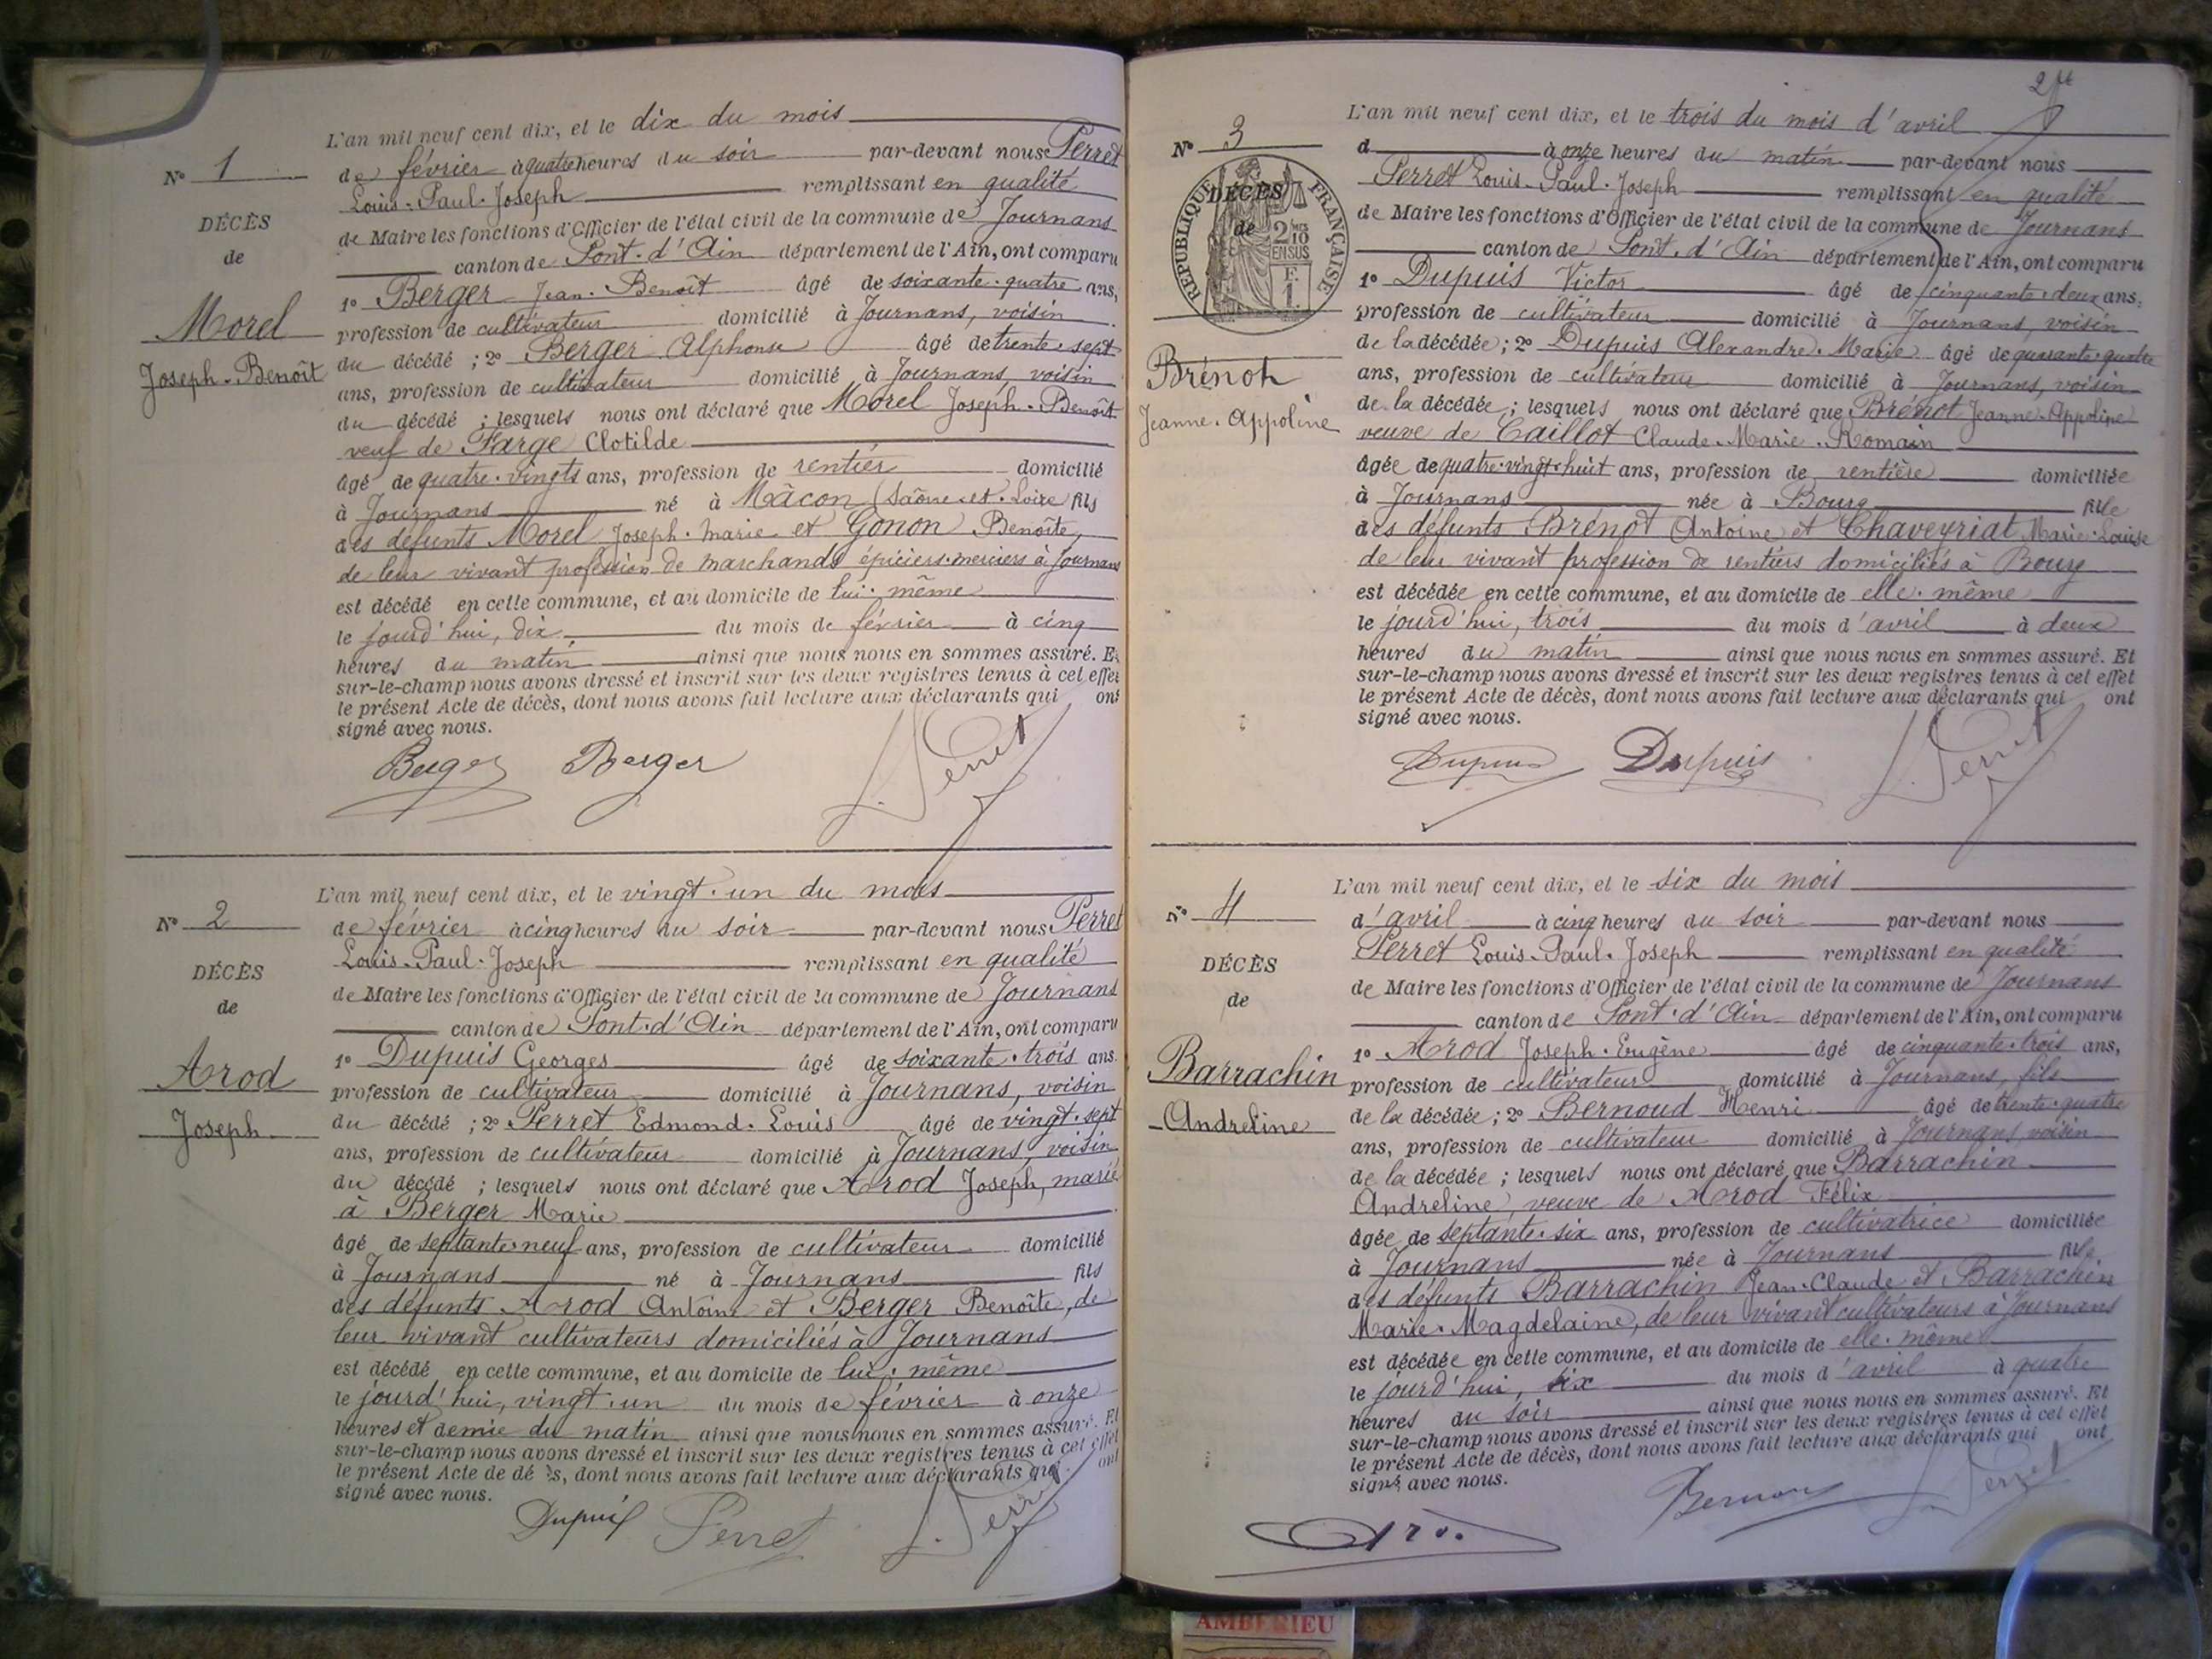 L'an mil neuf cent dix, et le dix du mois
N° 1
de février à quatre heures du soir par-devant nous Perret
Louis-Paul-Joseph remplissant en qualité
DÉCÈS
de Maire les fonctions d'Officier de l'état civil de la commune de Journans
de
canton de Pont-d'Ain département de l'Ain, ont comparu
1° Berger Jean-Benoît âgé de soixante-quatre ans,
Morel
profession de cultivateur domicilié à Journans, voisin
Joseph-Benoît
du décédé ; 2° Berger Alphonse âgé de trente-sept
ans, profession de cultivateur domicilié à Journans, voisin
du décédé ; lesquels nous ont déclaré que Morel Joseph-Benoît
veuf de Farge Clotilde
âgé de quatre-vingts ans, profession de rentier domicilié
à Journans né à Mâcon (Saône-et-Loire fils
des défunts Morel Joseph-Marie et Gonon Benoîte,
de leur vivant profession de marchands épiciers-merciers à Journans
est décédé en cette commune, et au domicile de lui-même
le jourd'hui, dix du mois de février à cinq
heures du matin ainsi que nous nous en sommes assuré. Et
sur-le-champ nous avons dressé et inscrit sur les deux registres tenus à cet effet
le présent Acte de décès, dont nous avons fait lecture aux déclarants qui ont
signé avec nous.
Berger Berger L. Perret
L'an mil neuf cent dix, et le vingt-un du mois
N° 2
de février à cinq heures du soir par-devant nous Perret
Louis-Paul-Joseph remplissant en qualité
DÉCÈS
de Maire les fonctions d'Officier de l'état civil de la commune de Journans
de
canton de Pont-d'Ain département de l'Ain, ont comparu
1° Dupuis Georges âgé de soixante-trois ans.
Arod
profession de cultivateur domicilié à Journans, voisin
Joseph
du décédé ; 2° Perret Edmond-Louis âgé de vingt-sept
ans, profession de cultivateur domicilié à Journans, voisin
du décédé ; lesquels nous ont déclaré que Arod Joseph, marié
à Berger Marie
âgé de septante-neuf ans, profession de cultivateur domicilié
à Journans né à Journans fils
des défunts Arod Antoine et Berger Benoîte, de
leur vivant cultivateurs domiciliés à Journans
est décédé en cette commune, et au domicile de lui-même
le jourd'hui, vingt-un du mois de février à onze
heures et demie du matin ainsi que nous nous en sommes assuré. Et
sur-le-champ nous avons dressé et inscrit sur les deux registres tenus à cet effet
le présent Acte de dé s, dont nous avons fait lecture aux déclarants qui ont
signé avec nous.
Dupuis Perret L. Perret
L'an mil neuf cent dix, et le trois du mois d'avril
N° 3
d à onze heures du matin par-devant nous
Perret Louis-Paul-Joseph remplissant en qualité
RÉPUBLIQUE FRANÇAISE
DÉCÈS
de
2 MES
10
EN SUS
F.
1.
de Maire les fonctions d'Officier de l'état civil de la commune de Journans
canton de Pont-d'Ain département de l'Ain, ont comparu
1° Dupuis Victor âgé de cinquante-deux ans,
profession de cultivateur domicilié à Journans, voisin
Brénot
de la décédée ; 2° Dupuis Alexandre-Marie âgé de quarante-quatre
ans, profession de cultivateur domicilié à Journans, voisin
Jeanne-Appoline
de la décédée ; lesquels nous ont déclaré que Brénot Jeanne-Appoline
veuve de Caillot Claude-Marie-Romain
âgée de quatre-vingt-huit ans, profession de rentière domiciliée
à Journans née à Bourg fille
des défunts Brénot Antoine et Chaveyriat Marie-Louise
de leur vivant profession de rentiers domiciliés à Bourg
est décédée en cette commune, et au domicile de elle-même
le jourd'hui, trois du mois d'avril à deux
heures du matin ainsi que nous nous en sommes assuré. Et
sur-le-champ nous avons dressé et inscrit sur les deux registres tenus à cet effet
le présent Acte de décès, dont nous avons fait lecture aux déclarants qui ont
signé avec nous.
Dupuis Dupuis L. Perret
L'an mil neuf cent dix, et le six du mois
N° 4
d'avril à cinq heures du soir par-devant nous
Perret Louis-Paul-Joseph remplissant en qualité
DÉCÈS
de Maire les fonctions d'Officier de l'état civil de la commune de Journans
de
canton de Pont-d'Ain département de l'Ain, ont comparu
1° Arod Joseph-Eugène âgé de cinquante-trois ans,
Barrachin
profession de cultivateur domicilié à Journans, fils
Andreline
de la décédée ; 2° Bernoud Henri âgé de trente-quatre
ans, profession de cultivateur domicilié à Journans, voisin
de la décédée ; lesquels nous ont déclaré que Barrachin
Andreline, veuve de Arod Félix
âgée de septante-six ans, profession de cultivatrice domiciliée
à Journans née à Journans fille
des défunts Barrachin Jean-Claude et Barrachin
Marie-Magdelaine, de leur vivant cultivateurs à Journans
est décédée en cette commune, et au domicile de elle-même
le jourd'hui, six du mois d'avril à quatre
heures du soir ainsi que nous nous en sommes assuré. Et
sur-le-champ nous avons dressé et inscrit sur les deux registres tenus à cet effet
le présent Acte de décès, dont nous avons fait lecture aux déclarants qui ont
signé avec nous.
Bernoud L. Perret
AMBERIEU